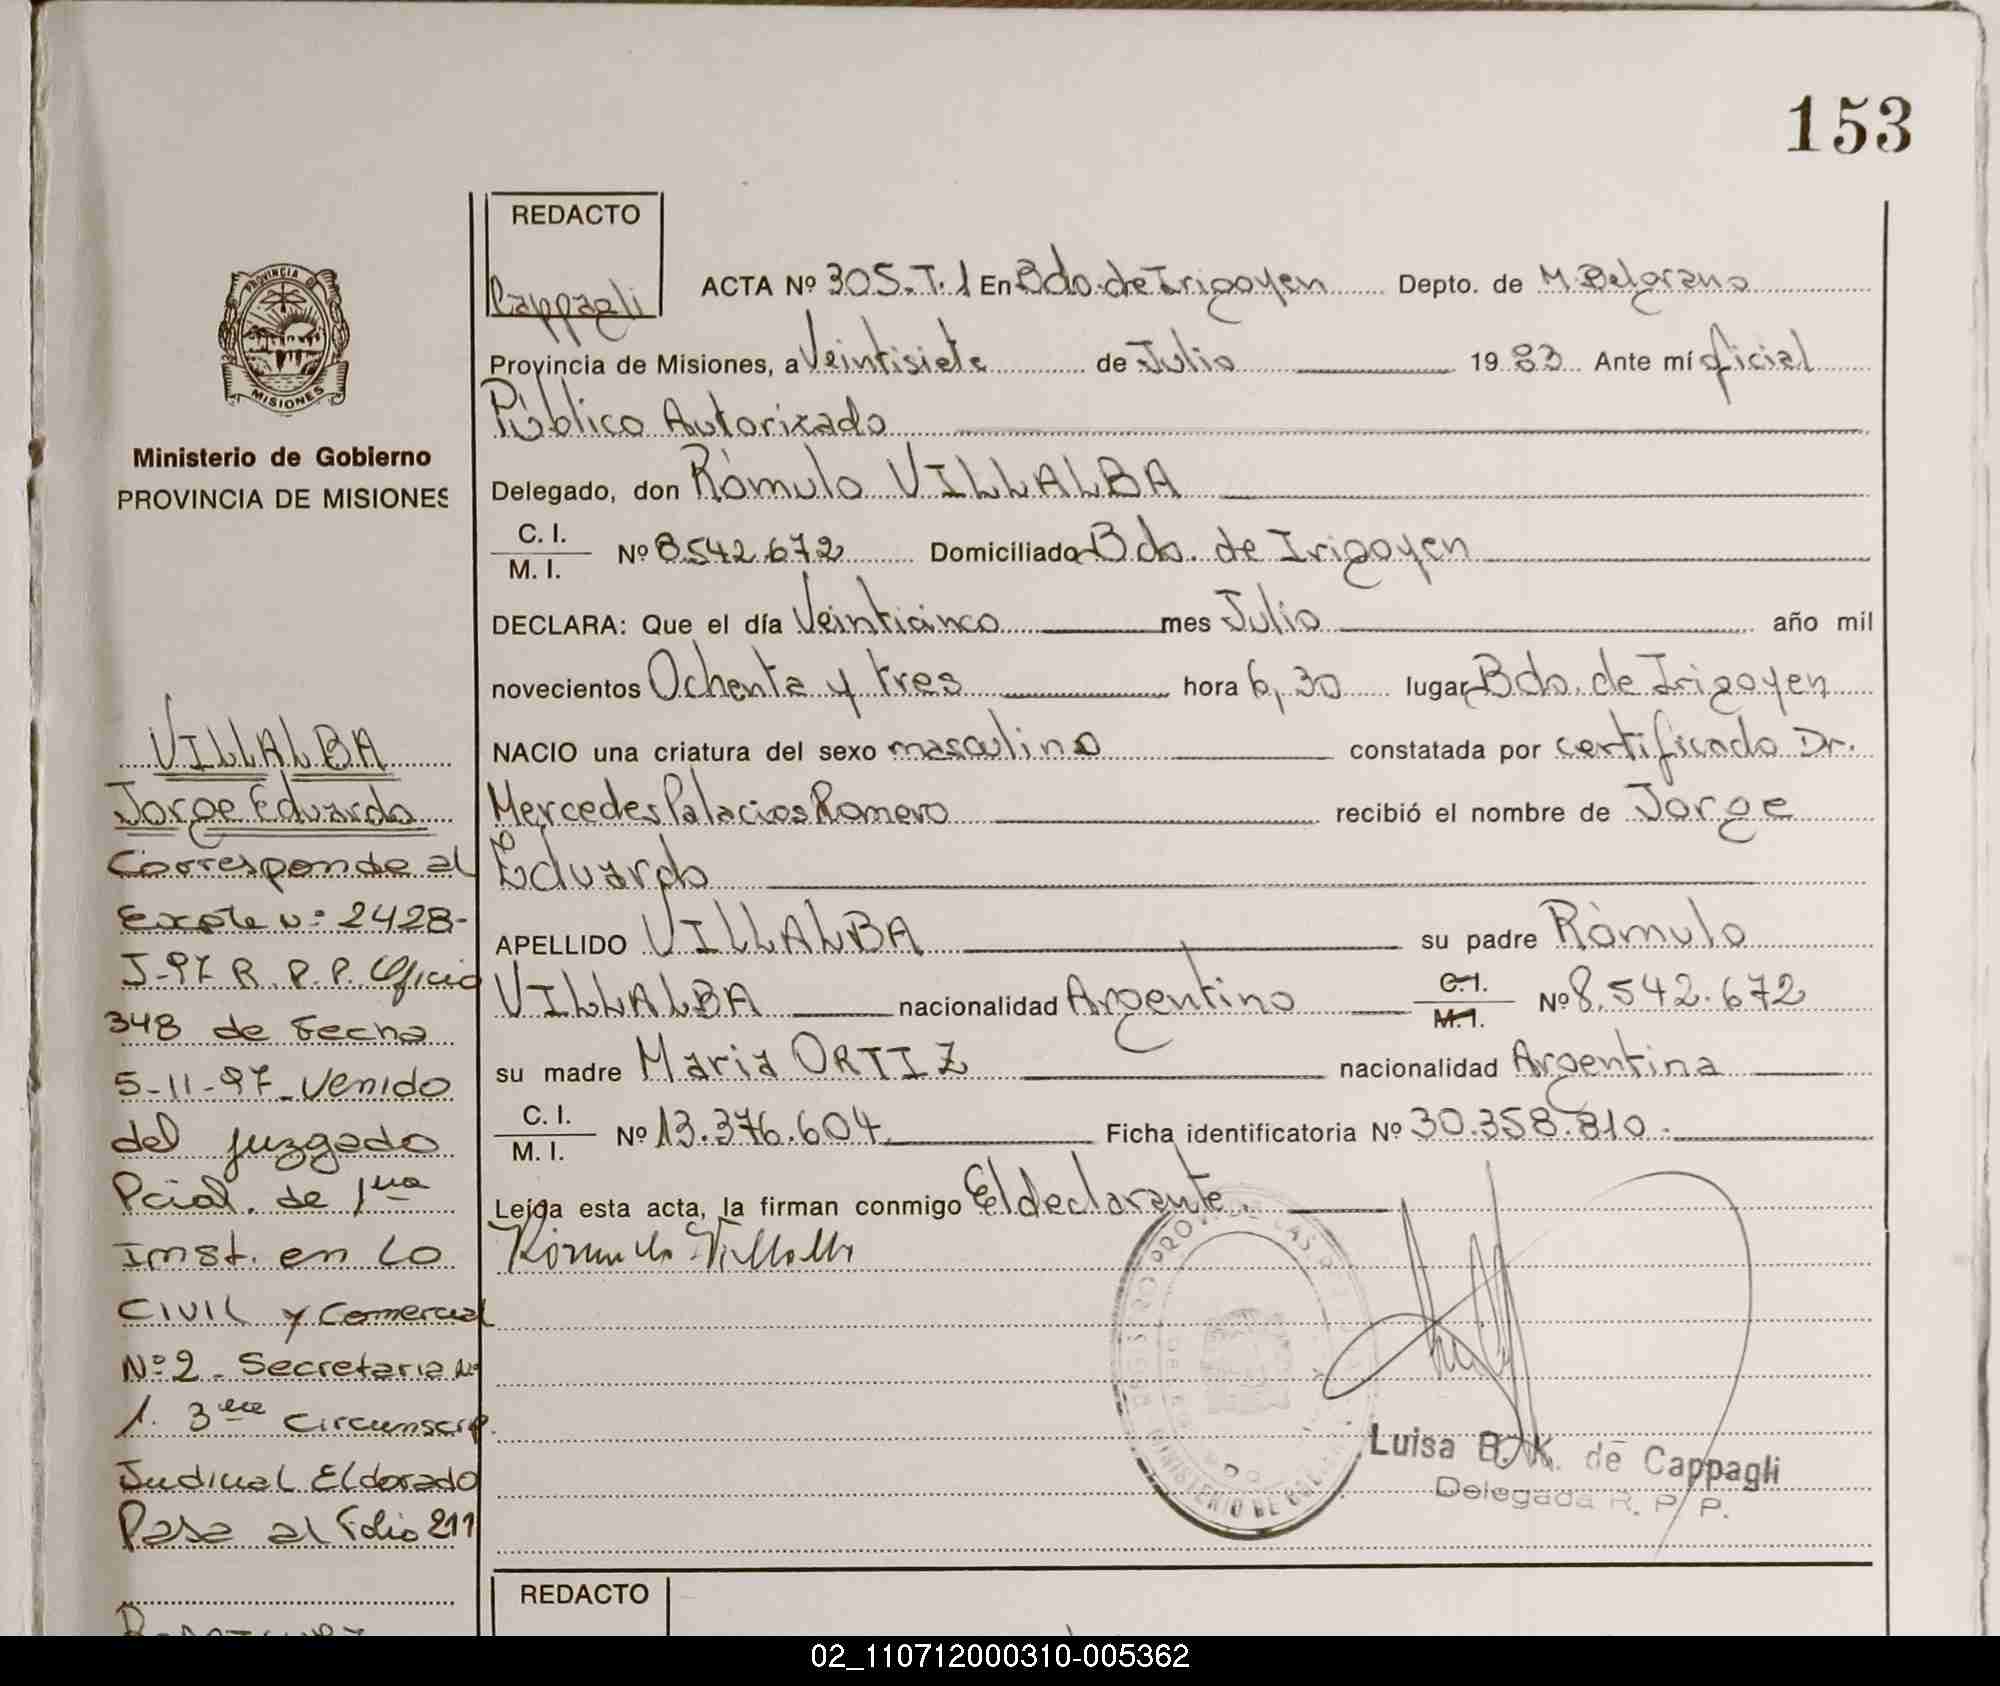 153
REDACTO
Cappagli
ACTA Nº 305. T. 1 En Bdo. de Irigoyen Depto. de M. Belgrano
Provincia de Misiones, a Veintisiete de Julio 1983 Ante mí oficial
Público Autorizado
Delegado, don Rómulo VILLALBA
C. I.
M. I. Nº 8.542.672 Domiciliado Bdo. de Irigoyen
DECLARA: Que el día Veinticinco mes Julio año mil
novecientos Ochenta y tres hora 6,30 lugar Bdo. de Irigoyen
NACIO una criatura del sexo masculino constatada por certificado Dr.
Mercedes Palacios Romero recibió el nombre de Jorge
Eduardo
APELLIDO VILLALBA su padre Rómulo
VILLALBA nacionalidad Argentino C.I. M.I. Nº 8.542.672
su madre Maria ORTIZ nacionalidad Argentina
C. I.
M. I. Nº 13.376.604 Ficha identificatoria Nº 30.358.810.
Leída esta acta, la firman conmigo El declarante.
Rómulo Villalba
Luisa B. K. de Cappagli
Delegada R. P. P.
REDACTO
PROVINCIA DE
MISIONES
Ministerio de Gobierno
PROVINCIA DE MISIONES
VILLALBA
Jorge Eduardo
Corresponde al
Expte nº 2428-
J-97 R. P. P. Oficio
348 de Fecha
5-11-97 - Venido
del juzgado
Pcial. de 1ra
Inst. en Lo
CIVIL y Comercial
Nº 2 - Secretaria Nº
1. 3era Circunscrip.
Judicial Eldorado
Pasa al Folio 211
02_110712000310-005362